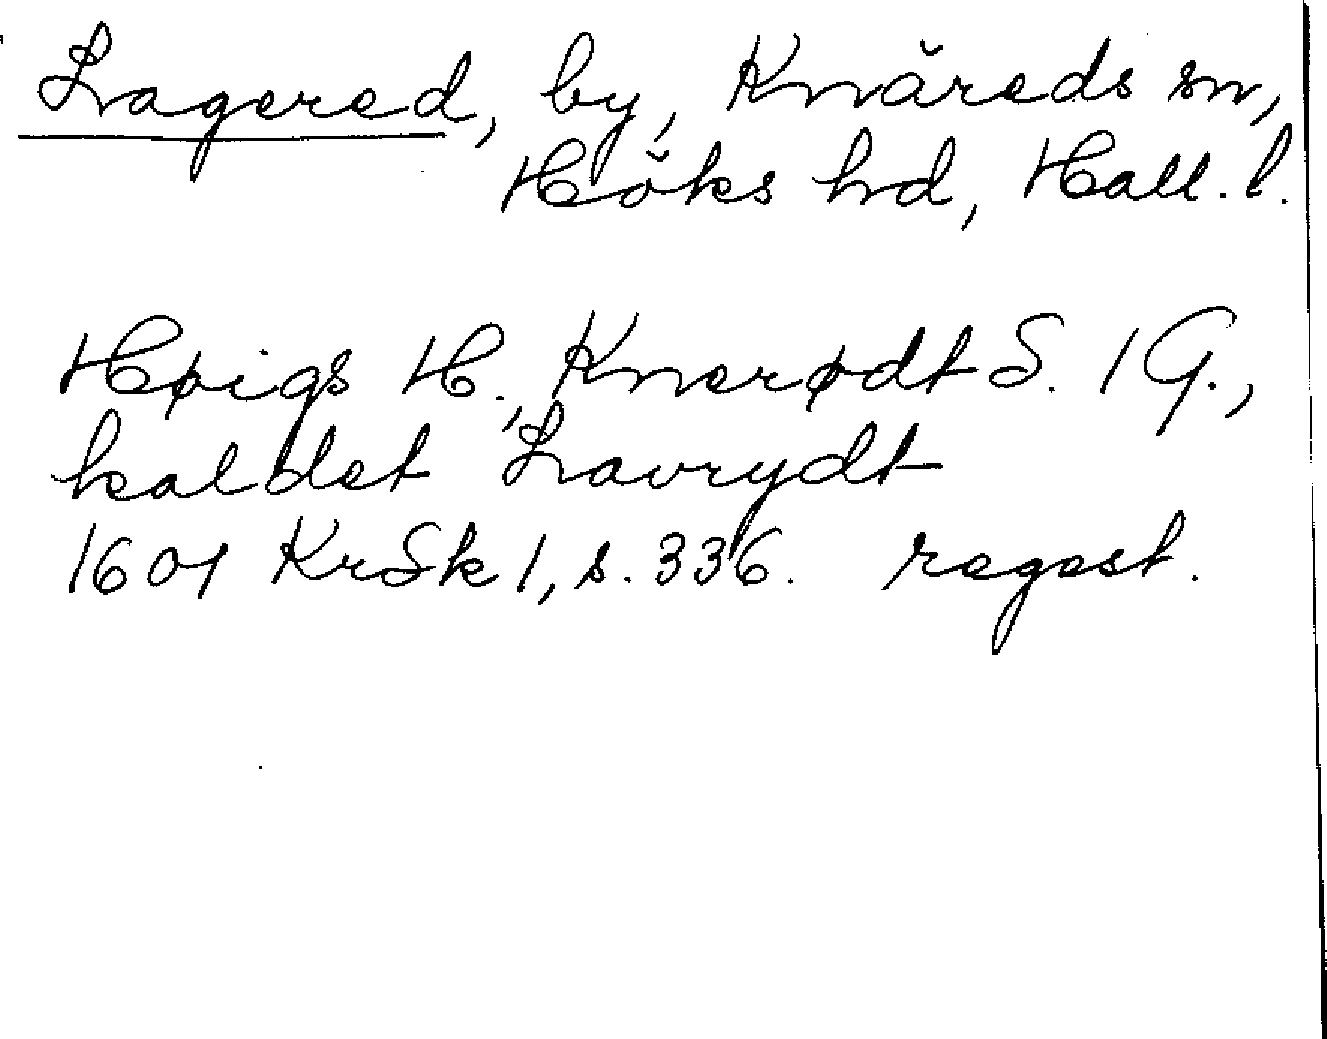 Lagered, by, Knäreds sn,
Höks hd, Hall. l.
Høigs H., Knerødt S. 1 G.,
kaldet Lavrydt
1601 KrSk 1, s. 336. regest.